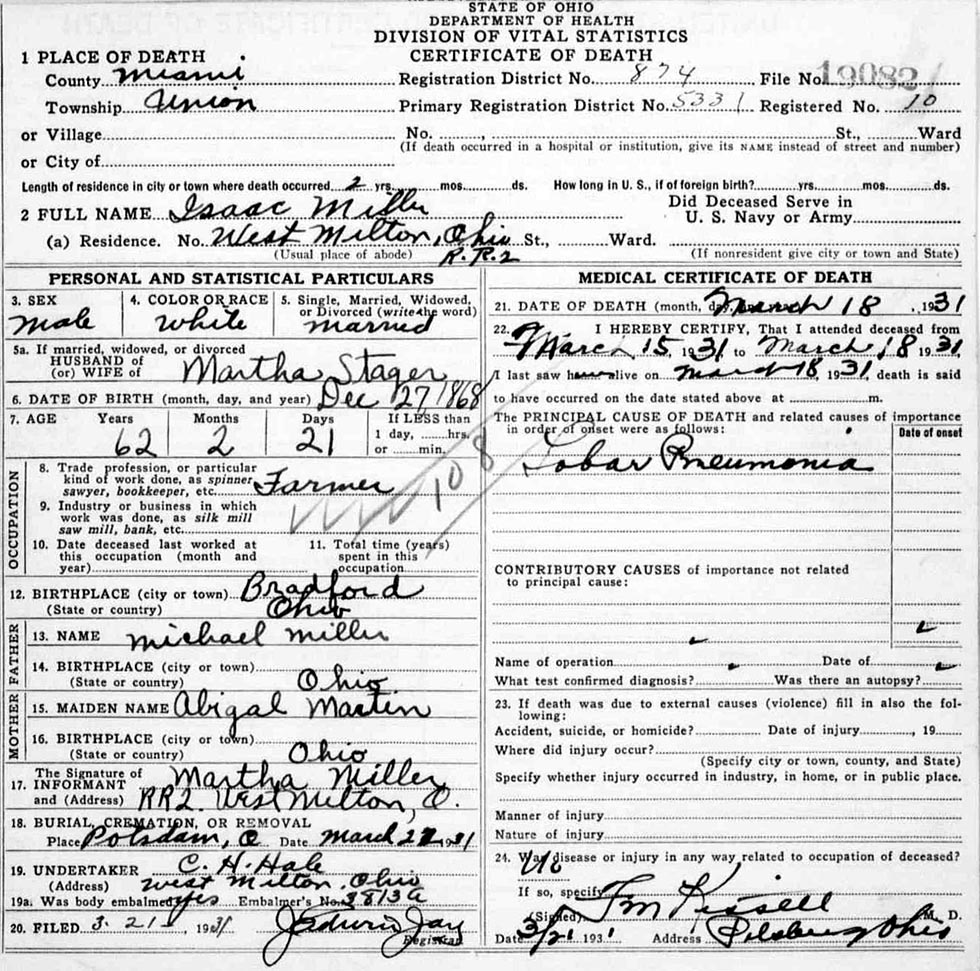 STATE OF OHIO
DEPARTMENT OF HEALTH
DIVISION OF VITAL STATISTICS
CERTIFICATE OF DEATH
1 PLACE OF DEATH
County Miami Registration District No. 874 File No. 19082
Township Union Primary Registration District No. 5331 Registered No. 10
or Village No. , St., Ward
(If death occurred in a hospital or institution, give its NAME instead of street and number)
or City of
Length of residence in city or town where death occurred 2 yrs. mos. ds. How long in U. S., if of foreign birth? yrs. mos. ds.
2 FULL NAME Isaac Miller Did Deceased Serve in U. S. Navy or Army
(a) Residence. No. West Milton, Ohio St., Ward.
(Usual place of abode) R.R.2 (If nonresident give city or town and State)
PERSONAL AND STATISTICAL PARTICULARS
3. SEX 4. COLOR OR RACE 5. Single, Married, Widowed, or Divorced (write the word)
Male White Married
5a. If married, widowed, or divorced
HUSBAND of
(or) WIFE of Martha Stager
6. DATE OF BIRTH (month, day, and year) Dec 27 1868
7. AGE Years Months Days If LESS than
62 2 21 1 day, hrs.
or min.
108
OCCUPATION
8. Trade profession, or particular
kind of work done, as spinner
sawyer, bookkeeper, etc. Farmer
9. Industry or business in which
work was done, as silk mill
saw mill, bank, etc.
10. Date deceased last worked at
this occupation (month and
year)
11. Total time (years)
spent in this
occupation
12. BIRTHPLACE (city or town) Bradford
(State or country) Ohio
FATHER
13. NAME Michael Miller
14. BIRTHPLACE (city or town)
(State or country) Ohio
MOTHER
15. MAIDEN NAME Abigal Martin
16. BIRTHPLACE (city or town)
(State or country) Ohio
The Signature of
17. INFORMANT Martha Miller
and (Address) RR2. West Milton, O.
18. BURIAL, CREMATION, OR REMOVAL
Place Potsdam, O Date March 1931
19. UNDERTAKER C. H. Hale
(Address) West Milton, Ohio
19a. Was body embalmed yes Embalmer's No. 3813A
20. FILED 3. 21 1931 J Edwin Jay
Registrar
MEDICAL CERTIFICATE OF DEATH
21. DATE OF DEATH (month, day, March 18, 1931
22. I HEREBY CERTIFY, That I attended deceased from
March 15, 1931 to March 18 1931
I last saw alive on March 18, 1931, death is said
to have occurred on the date stated above at m.
The PRINCIPAL CAUSE OF DEATH and related causes of importance
in order of onset were as follows: Date of onset
Lobar Pneumonia
CONTRIBUTORY CAUSES of importance not related
to principal cause:
Name of operation Date of
What test confirmed diagnosis? Was there an autopsy?
23. If death was due to external causes (violence) fill in also the fol-
lowing:
Accident, suicide, or homicide? Date of injury , 19
Where did injury occur?
(Specify city or town, county, and State)
Specify whether injury occurred in industry, in home, or in public place.
Manner of injury
Nature of injury
24. Was disease or injury in any way related to occupation of deceased?
No
If so, specify
(Signed) Kissell M. D.
Date 3/21 1931 Address Pitsburg Ohio